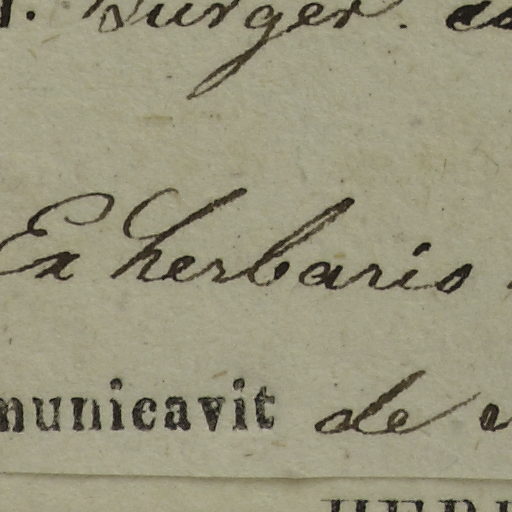 Burger.
Ex herbario
municavit de
HERB